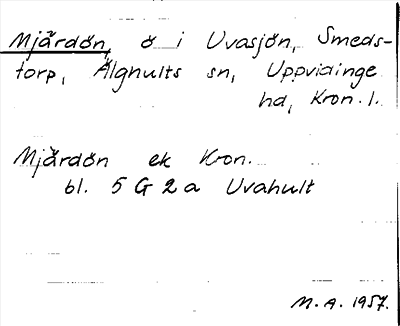 Mjärdön, ö i Uvasjön, Smeds-
torp, Älghults sn, Uppvidinge
hd, Kron. l.
Mjärdön ek Kron.
bl. 5 G 2 a Uvahult
M. A. 1957.